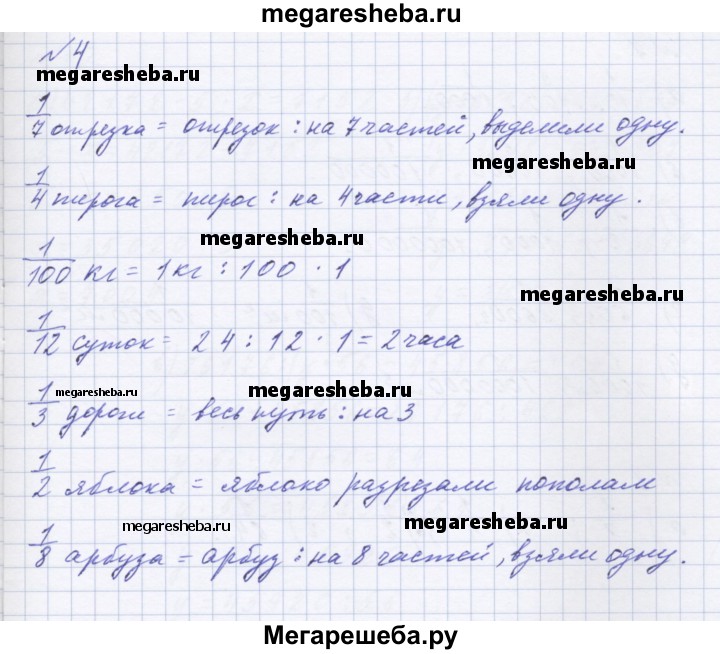 megaresheba.ru
№4
megaresheba.ru
1/7 отрезка = отрезок : на 7 частей, выделили одну.
megaresheba.ru
1/4 пирога = пирог : на 4 части, взяли одну.
megaresheba.ru
1/100 кг = 1кг : 100 · 1
megaresheba.ru
1/12 суток = 24 : 12 · 1 = 2 часа
megaresheba.ru megaresheba.ru
1/3 дороги = весь путь : на 3
1/2 яблока = яблоко разрезали пополам
megaresheba.ru megaresheba.ru
1/8 арбуза = арбуз : на 8 частей, взяли одну.
Мегарешеба.ру